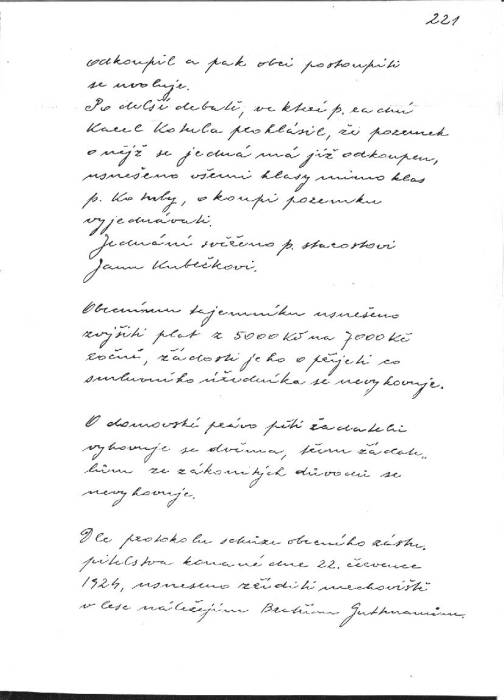 221
odkoupil a pak obci postoupiti
se uvoluje.
Po delší debatě, ve které p. radní
Karel Kotula prohlásil, že pozemek
o nějž se jedná má již odkoupen,
usnešeno všemi hlasy mimo hlas
p. Kotuly, o koupi pozemku
vyjednávati.
Jednání svěřeno p. starostovi
Janu Kubíčkovi.
Obecnímu tajemníku usnešeno
zvýšiti plat z 5000 Kč na 7000 Kč
ročně, žádosti jeho o přijetí co
smluvního úředníka se nevyhovuje.
O domovské právo pěti žadatelů
vyhovuje se dvěma, třem žádat„
elům ze zákonitých důvodů se
nevyhovuje.
Dle protokolu schůze obecního zastu„
pitelstva konané dne 22. července
1924, usneseno zříditi smetiště
v lese náležejícím Bratřím Guttmannům.